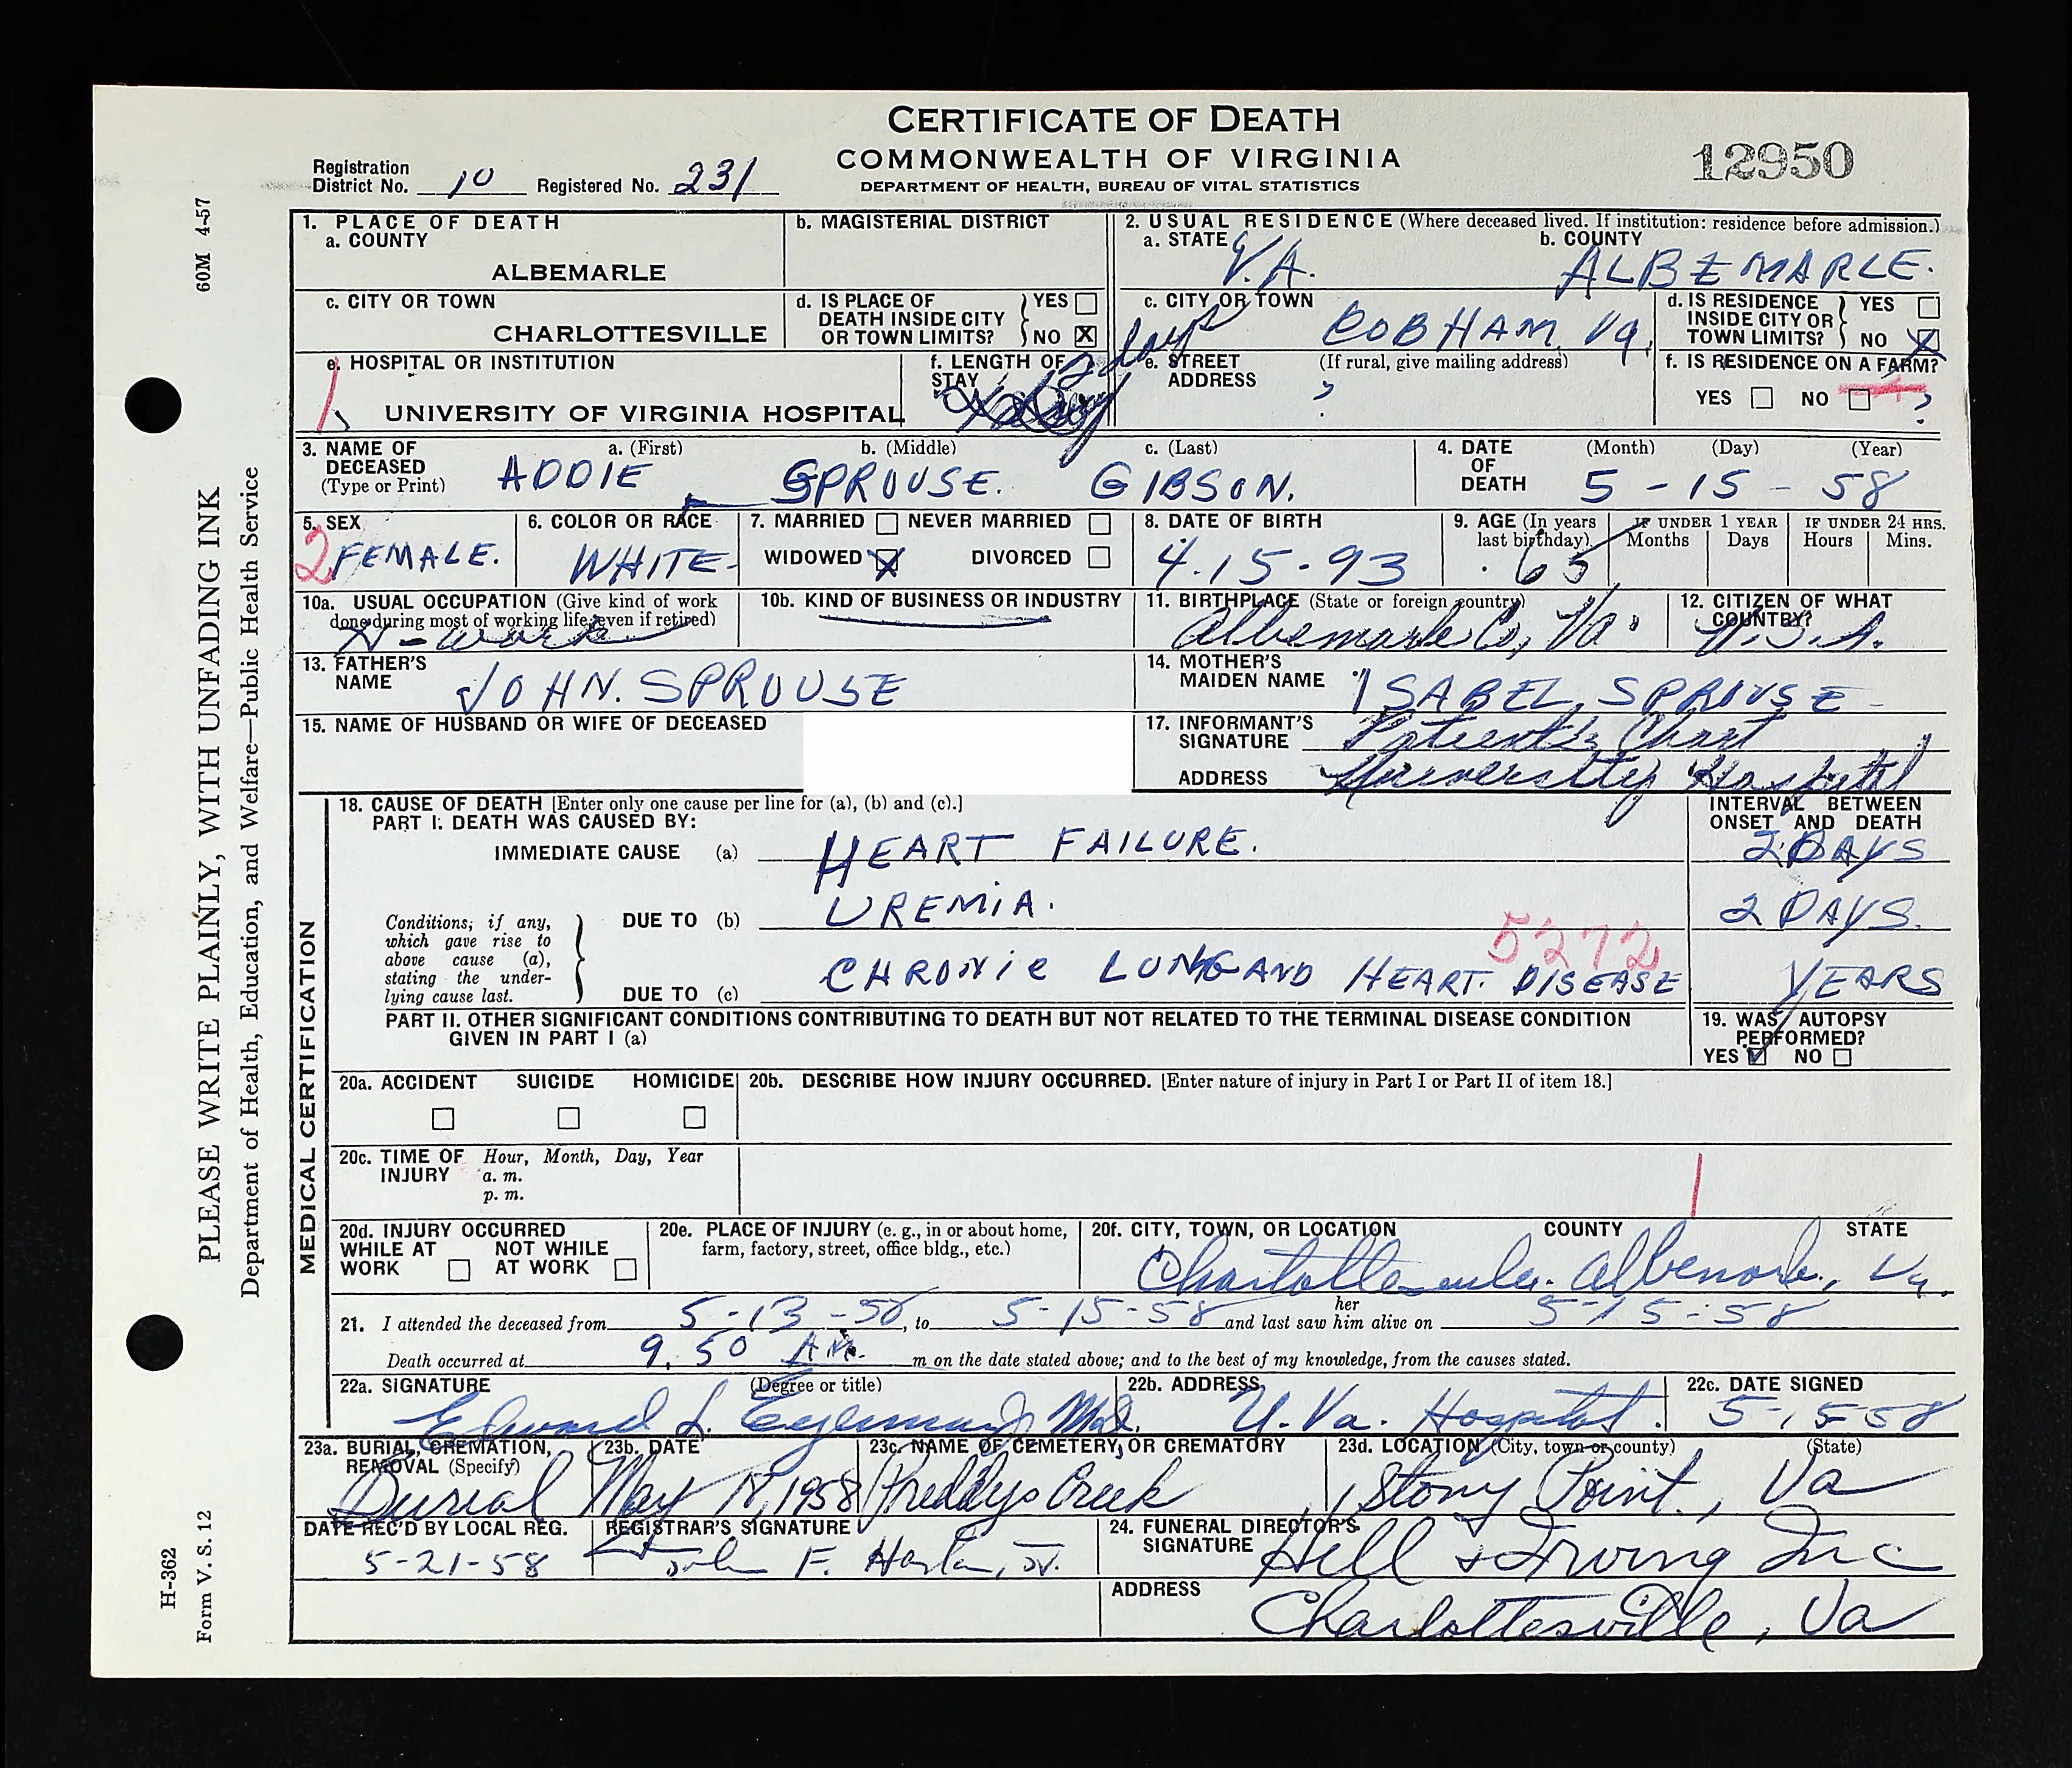 CERTIFICATE OF DEATH
COMMONWEALTH OF VIRGINIA
DEPARTMENT OF HEALTH, BUREAU OF VITAL STATISTICS
12950
Registration
District No. 10 Registered No. 231
1. PLACE OF DEATH
a. COUNTY
ALBEMARLE
b. MAGISTERIAL DISTRICT
2. USUAL RESIDENCE (Where deceased lived. If institution: residence before admission.)
a. STATE VA.
b. COUNTY ALBEMARLE.
c. CITY OR TOWN
CHARLOTTESVILLE
d. IS PLACE OF DEATH INSIDE CITY OR TOWN LIMITS? YES NO X
c. CITY OR TOWN COBHAM, Va.
d. IS RESIDENCE INSIDE CITY OR TOWN LIMITS? YES NO X
e. HOSPITAL OR INSTITUTION
UNIVERSITY OF VIRGINIA HOSPITAL
f. LENGTH OF STAY 2 days
e. STREET ADDRESS (If rural, give mailing address)
?
f. IS RESIDENCE ON A FARM?
YES NO ?
3. NAME OF DECEASED (Type or Print)
a. (First) b. (Middle) c. (Last)
ADDIE SPROUSE. GIBSON.
4. DATE OF DEATH (Month) (Day) (Year)
5 - 15 - 58
5. SEX
2 FEMALE.
6. COLOR OR RACE
WHITE
7. MARRIED NEVER MARRIED
WIDOWED X DIVORCED
8. DATE OF BIRTH
4.15-93
9. AGE (In years last birthday)
65
IF UNDER 1 YEAR
Months Days
IF UNDER 24 HRS.
Hours Mins.
10a. USUAL OCCUPATION (Give kind of work done during most of working life, even if retired)
H-work
10b. KIND OF BUSINESS OR INDUSTRY
11. BIRTHPLACE (State or foreign country)
Albemarle Co, Va.
12. CITIZEN OF WHAT COUNTRY?
U.S.A.
13. FATHER'S NAME JOHN. SPROUSE
14. MOTHER'S MAIDEN NAME ISABEL SPROUSE
15. NAME OF HUSBAND OR WIFE OF DECEASED
17. INFORMANT'S SIGNATURE Patient's Chart
ADDRESS University Hospital
MEDICAL CERTIFICATION
18. CAUSE OF DEATH [Enter only one cause per line for (a), (b) and (c).]
PART I. DEATH WAS CAUSED BY:
INTERVAL BETWEEN ONSET AND DEATH
IMMEDIATE CAUSE (a) HEART FAILURE. 2 DAYS
Conditions, if any, which gave rise to above cause (a), stating the underlying cause last.
DUE TO (b) UREMIA. 2 DAYS.
5272
DUE TO (c) CHRONIC LUNG AND HEART DISEASE YEARS
PART II. OTHER SIGNIFICANT CONDITIONS CONTRIBUTING TO DEATH BUT NOT RELATED TO THE TERMINAL DISEASE CONDITION
GIVEN IN PART I (a)
19. WAS AUTOPSY PERFORMED?
YES NO
20a. ACCIDENT SUICIDE HOMICIDE
20b. DESCRIBE HOW INJURY OCCURRED. [Enter nature of injury in Part I or Part II of item 18.]
20c. TIME OF INJURY Hour, Month, Day, Year
a. m.
p. m.
20d. INJURY OCCURRED
WHILE AT WORK NOT WHILE AT WORK
20e. PLACE OF INJURY (e. g., in or about home, farm, factory, street, office bldg., etc.)
20f. CITY, TOWN, OR LOCATION COUNTY STATE
Charlottesville. Albemarle, Va.
21. I attended the deceased from 5-13-58, to 5-15-58 and last saw her him alive on 5-15-58
Death occurred at 9.50 A.M. m on the date stated above; and to the best of my knowledge, from the causes stated.
22a. SIGNATURE (Degree or title)
Edward L. M.D.
22b. ADDRESS
U. Va. Hospital.
22c. DATE SIGNED
5-15-58
23a. BURIAL, CREMATION, REMOVAL (Specify)
Burial
23b. DATE
May 17, 1958
23c. NAME OF CEMETERY, OR CREMATORY
Preddys Creek
23d. LOCATION (City, town or county) (State)
Stony Point, Va
DATE REC'D BY LOCAL REG.
5-21-58
REGISTRAR'S SIGNATURE
F.
24. FUNERAL DIRECTOR'S SIGNATURE
Hill & Irving Inc
ADDRESS
Charlottesville, Va
60M 4-57
PLEASE WRITE PLAINLY, WITH UNFADING INK
Department of Health, Education, and Welfare—Public Health Service
H-362
Form V. S. 12